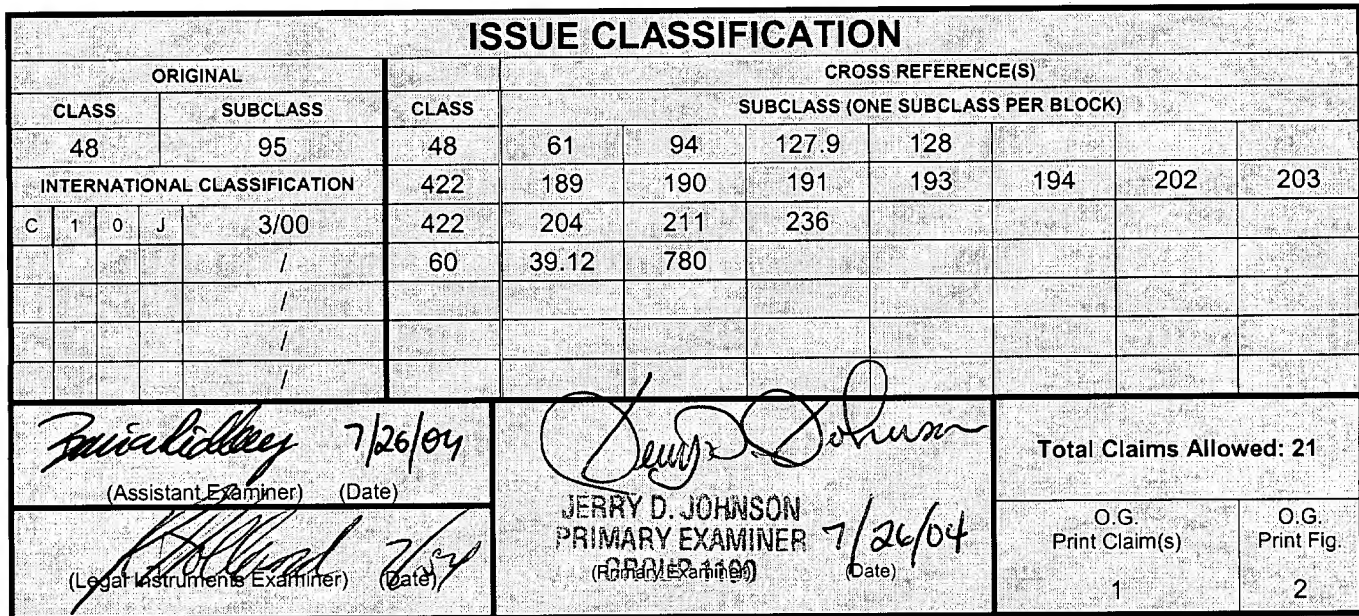 ISSUE CLASSIFICATION
ORIGINAL CROSS REFERENCE(S)
CLASS SUBCLASS CLASS SUBCLASS (ONE SUBCLASS PER BLOCK)
48 95 48 61 94 127.9 128
INTERNATIONAL CLASSIFICATION 422 189 190 191 193 194 202 203
C 1 0 J 3/00 422 204 211 236
/ 60 39.12 780
/
/
/
7/26/04
(Assistant Examiner) (Date)
Jerry D. Johnson
JERRY D. JOHNSON
PRIMARY EXAMINER 7/26/04
GROUP 1100
(Primary Examiner) (Date)
(Legal Instruments Examiner) (Date)
Total Claims Allowed: 21
O.G. Print Claim(s) O.G. Print Fig.
1 2